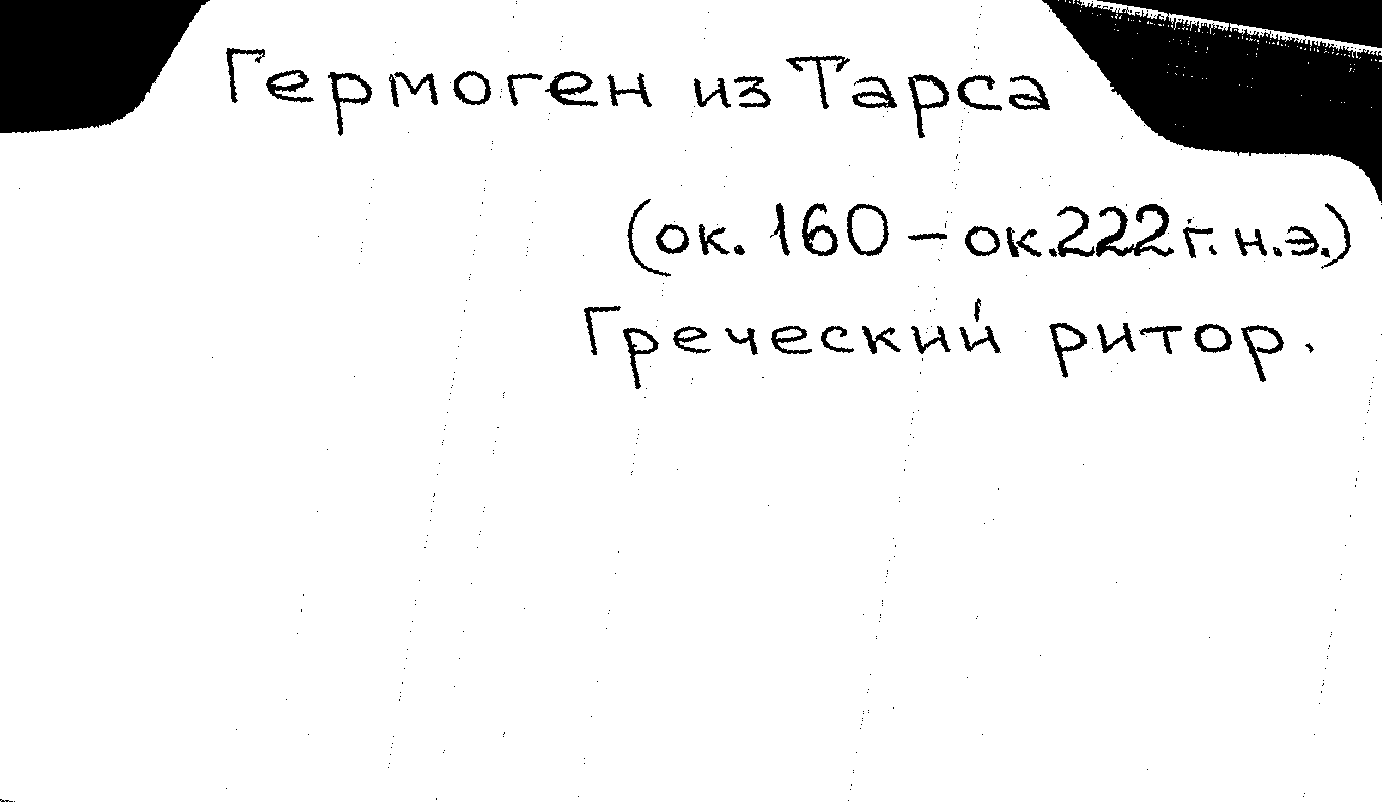 Гермоген из Тарса
(ок. 160 – ок. 222 г. н.э.)
Греческий ритор.